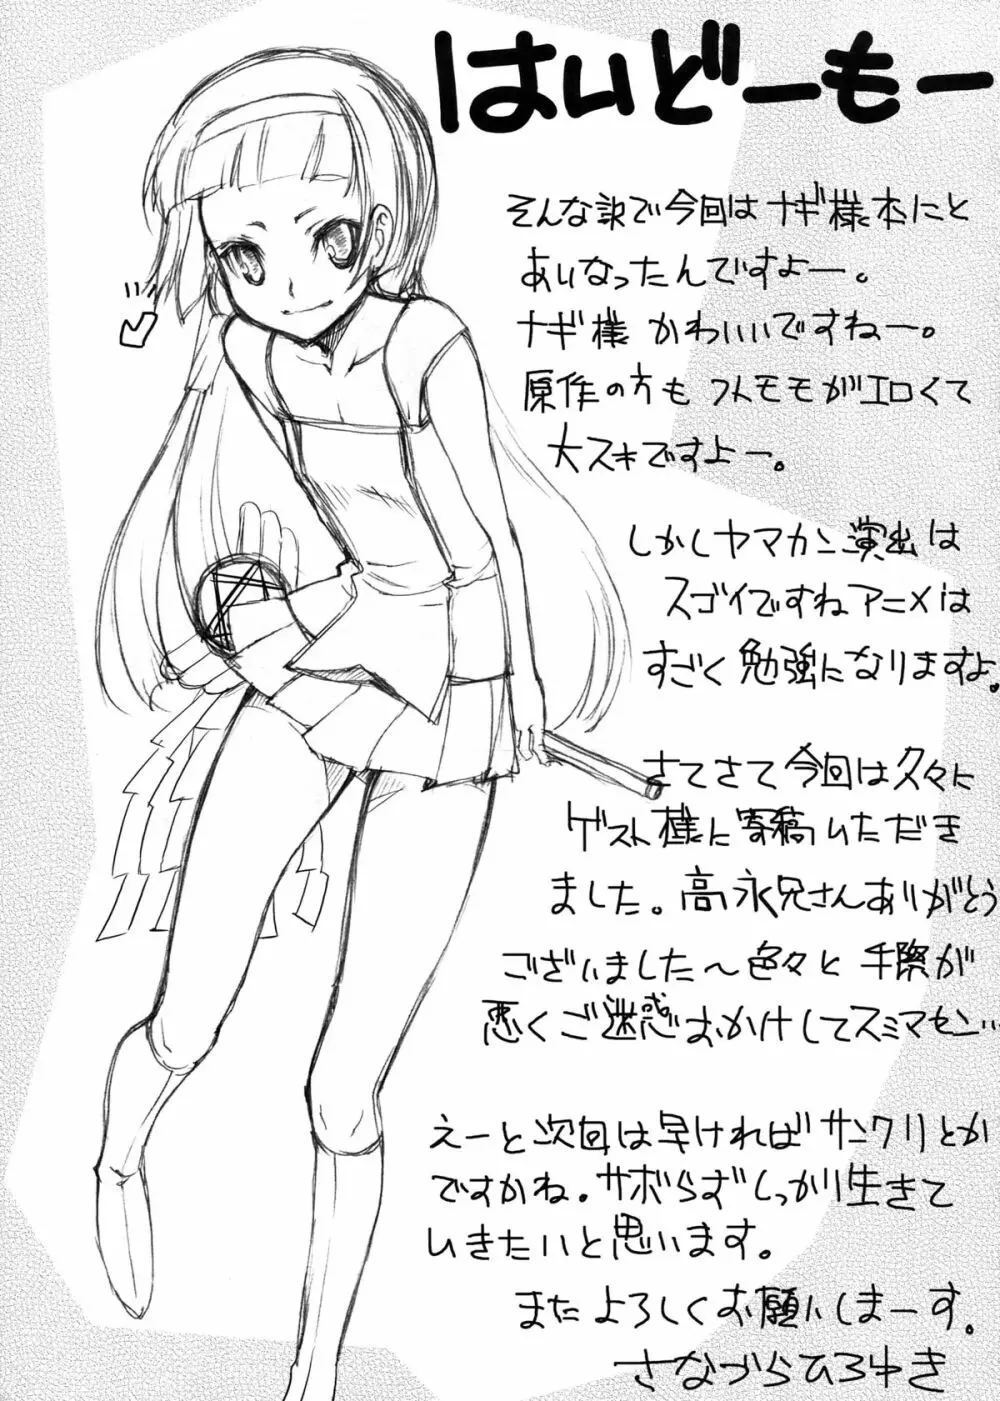 はいどーもー
そんな訳で今回はナギ様本にと
あいなったんですよー。
ナギ様かわいいですねー。
原作の方もフトモモがエロくて
大スキですよー。
しかしヤマカン演出は
スゴイですねアニメは
すごく勉強になりますよ。
さてさて今回は久々に
ゲスト様に寄稿いただき
ました。高永兄さんありがとう
ございました〜色々と手際が
悪くご迷惑おかけしてスミマセン…
えーと次回は早ければサンクリとか
ですかね。サボらずしっかり生きて
いきたいと思います。
またよろしくお願いしまーす。
さなづらひろゆき